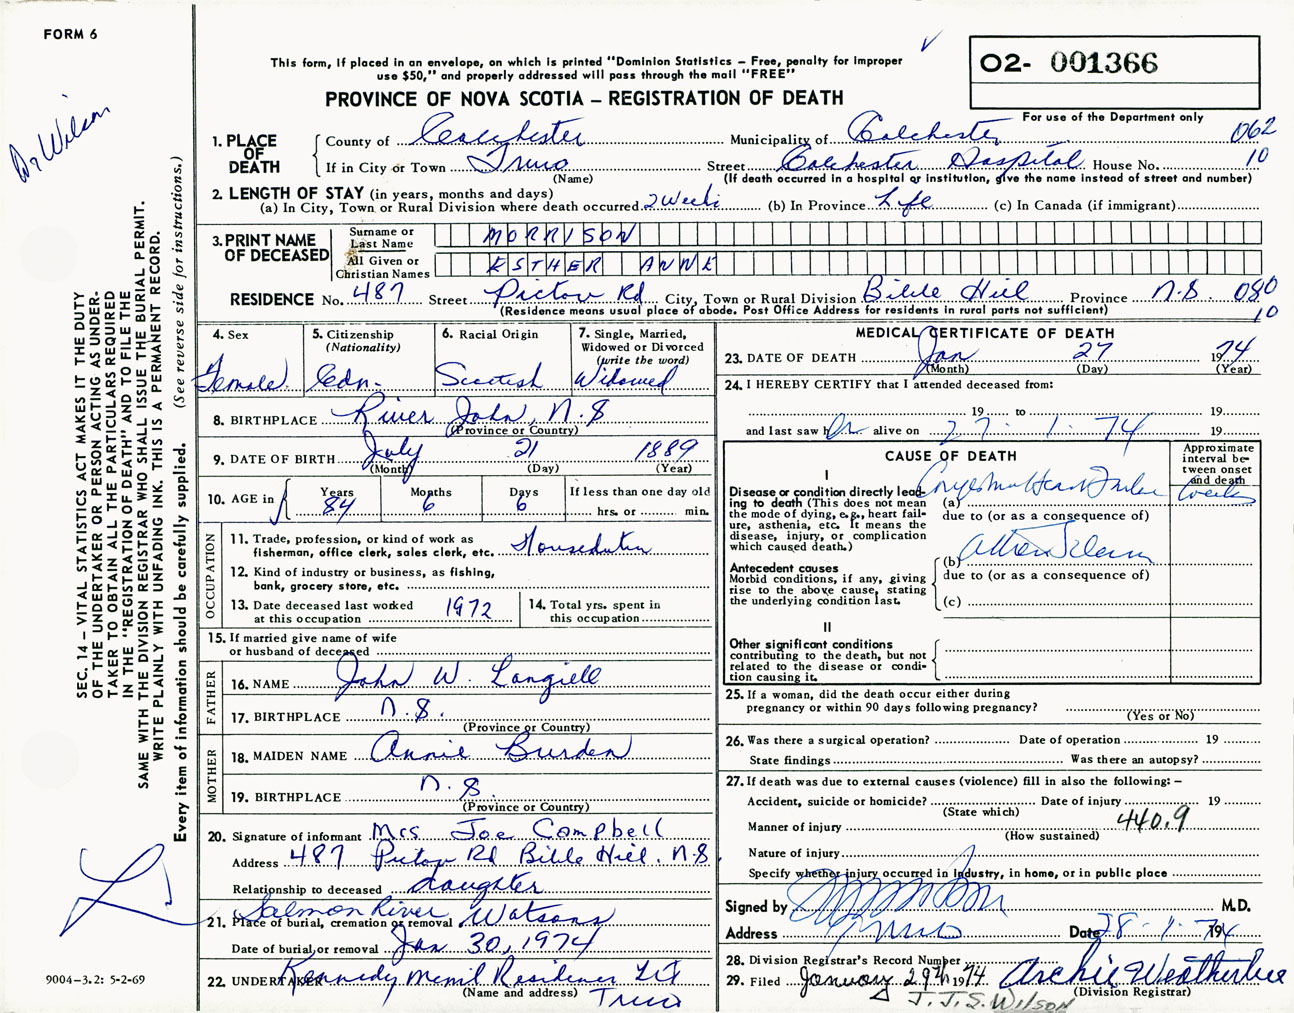 FORM 6
Dr Wilson
SEC. 14 – VITAL STATISTICS ACT MAKES IT THE DUTY
OF THE UNDERTAKER OR PERSON ACTING AS UNDER-
TAKER TO OBTAIN ALL THE PARTICULARS REQUIRED
IN THE "REGISTRATION OF DEATH" AND TO FILE THE
SAME WITH THE DIVISION REGISTRAR WHO SHALL ISSUE THE BURIAL PERMIT.
WRITE PLAINLY WITH UNFADING INK. THIS IS A PERMANENT RECORD.
Every item of information should be carefully supplied. (See reverse side for instructions.)
9004–3.2: 5-2-69
This form, if placed in an envelope, on which is printed "Dominion Statistics – Free, penalty for improper
use $50," and properly addressed will pass through the mail "FREE"
PROVINCE OF NOVA SCOTIA – REGISTRATION OF DEATH
O2- 001366
For use of the Department only
1. PLACE OF DEATH County of Colchester Municipality of Colchester 062
If in City or Town Truro Street Colchester Hospital House No. 10
(Name) (If death occurred in a hospital or institution, give the name instead of street and number)
2. LENGTH OF STAY (in years, months and days)
(a) In City, Town or Rural Division where death occurred 2 Weeks (b) In Province Life (c) In Canada (if immigrant)
3. PRINT NAME OF DECEASED Surname or Last Name MORRISON
All Given or Christian Names ESTHER ANNE
RESIDENCE No. 487 Street Pictou Rd City, Town or Rural Division Bible Hill Province N.S. 080
(Residence means usual place of abode. Post Office Address for residents in rural parts not sufficient) 10
4. Sex 5. Citizenship (Nationality) 6. Racial Origin 7. Single, Married, Widowed or Divorced (write the word)
Female Cdn. Scottish Widowed
8. BIRTHPLACE River John, N.S
(Province or Country)
9. DATE OF BIRTH July 21 1889
(Month) (Day) (Year)
10. AGE in Years Months Days If less than one day old
84 6 6 hrs. or min.
OCCUPATION
11. Trade, profession, or kind of work as
fisherman, office clerk, sales clerk, etc. Houseduties
12. Kind of industry or business, as fishing,
bank, grocery store, etc.
13. Date deceased last worked at this occupation 1972 14. Total yrs. spent in this occupation
15. If married give name of wife
or husband of deceased
FATHER
16. NAME John W. Langille
17. BIRTHPLACE N.S.
(Province or Country)
MOTHER
18. MAIDEN NAME Annie Burden
19. BIRTHPLACE N.S.
(Province or Country)
20. Signature of informant Mrs Joe Campbell
Address 487 Pictou Rd Bible Hill. N.S.
Relationship to deceased daughter
21. Place of burial, cremation or removal Salmon River Watsons
Date of burial or removal Jan 30, 1974
22. UNDERTAKER Kennedy Meml Residence Ltd
(Name and address) Truro
MEDICAL CERTIFICATE OF DEATH
23. DATE OF DEATH Jan 27 1974
(Month) (Day) (Year)
24. I HEREBY CERTIFY that I attended deceased from:
19 to 19
and last saw her alive on 27 . 1 . 74 19
CAUSE OF DEATH
Approximate interval between onset and death
I
Disease or condition directly lead-
ing to death (This does not mean
the mode of dying, e.g., heart fail-
ure, asthenia, etc. It means the
disease, injury, or complication
which caused death.)
(a) Congestive Heart Failure weeks
due to (or as a consequence of)
Antecedent causes
Morbid conditions, if any, giving
rise to the above cause, stating
the underlying condition last.
(b)
due to (or as a consequence of)
(c)
II
Other significant conditions
contributing to the death, but not
related to the disease or condi-
tion causing it.
25. If a woman, did the death occur either during
pregnancy or within 90 days following pregnancy?
(Yes or No)
26. Was there a surgical operation? Date of operation 19
State findings Was there an autopsy?
27. If death was due to external causes (violence) fill in also the following: –
Accident, suicide or homicide? Date of injury 19
(State which)
Manner of injury 440.9
(How sustained)
Nature of injury
Specify whether injury occurred in industry, in home, or in public place
Signed by M.D.
Address Truro Date 28 . 1 . 74 19
28. Division Registrar's Record Number
29. Filed January 29th 1974 Archie Weatherbee
(Division Registrar)
J.J.S. WILSON